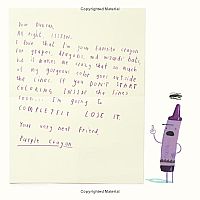 Copyrighted Material
Dear Duncan,
All right, LISTEN.
I love that I'm your favorite crayon
for grapes, dragons, and wizards' hats,
but it makes me crazy that so much
of my gorgeous color goes outside
the lines. If you DON'T START
COLORING INSIDE the lines
soon... I'm going to
COMPLETELY LOSE IT.
Your very neat friend,
Purple Crayon
Copyrighted Material